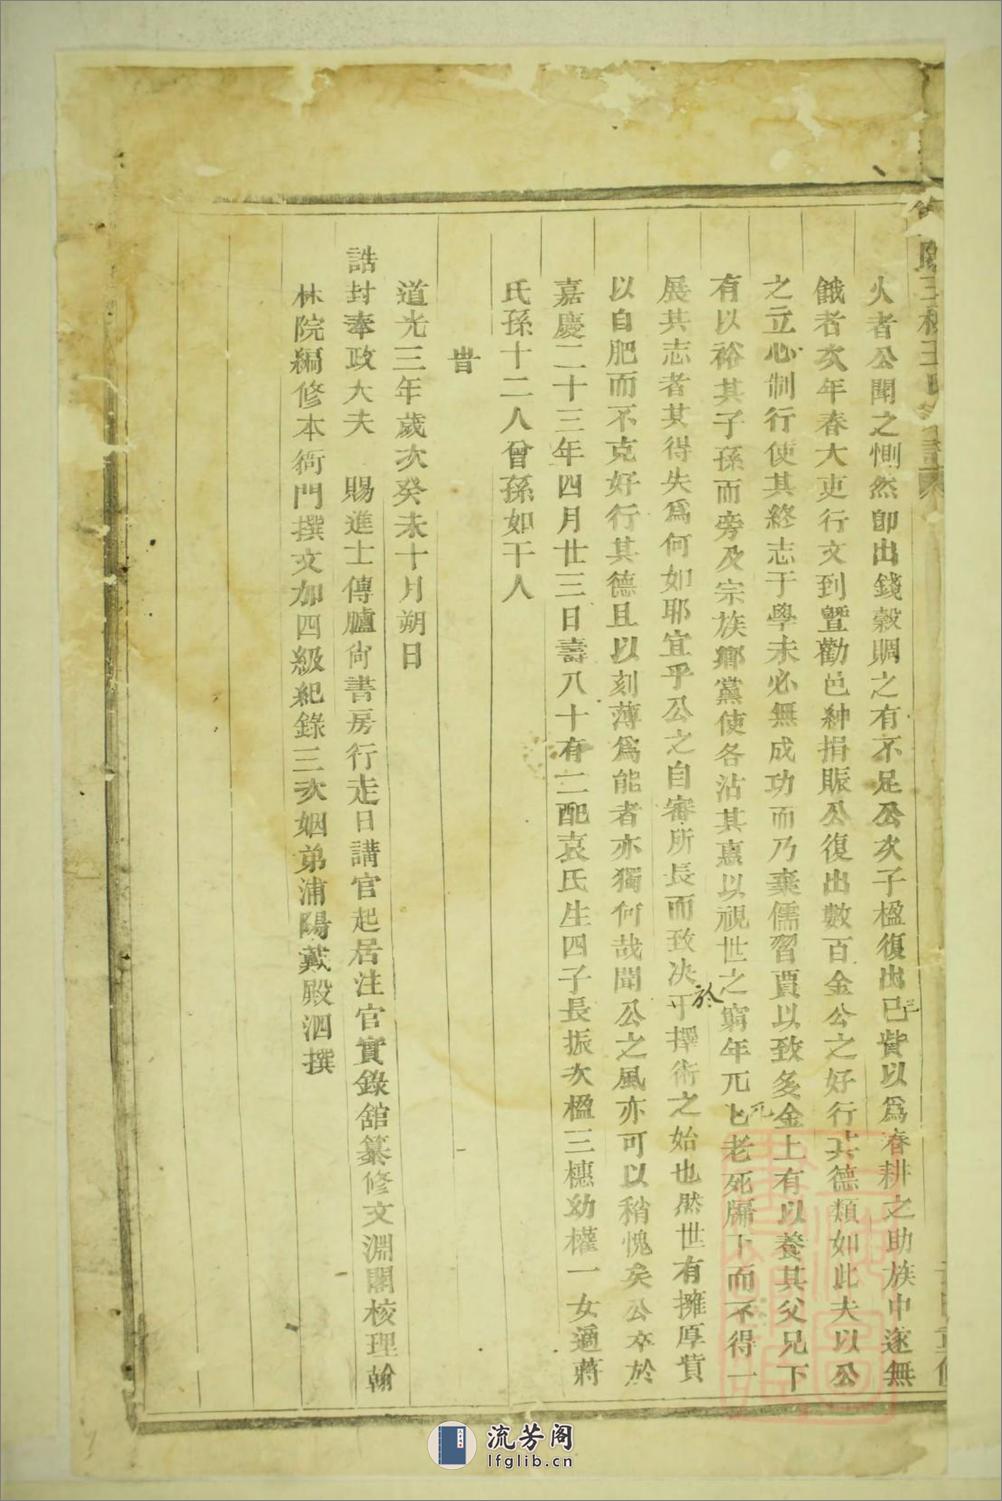 火者公聞之惻然卽出錢穀賙之有不足公次子楹復出己貲以爲春耕之助族中遂無
餓者次年春大吏行文到暨勸邑紳捐賑公復出數百金公之好行其德類如此夫以公
之立心制行使其終志于學未必無成功而乃棄儒習賈以致多金上有以養其父兄下
有以裕其子孫而旁及宗族鄉黨使各沾其惠以視世之窮年兀兀老死牖下而不得一
展其志者其得失爲何如耶宜乎公之自審所長而致决于擇術之始也然世有擁厚貲
於
以自肥而不克好行其德且以刻薄爲能者亦獨何哉聞公之風亦可以稍愧矣公卒於
嘉慶二十三年四月廿三日壽八十有二配袁氏生四子長振次楹三櫄幼權一女適蔣
氏孫十二人曾孫如干人
旹
道光三年歲次癸未十月朔日
誥封奉政大夫 賜進士傳臚尙書房行走日講官起居注官實錄館纂修文淵閣校理翰
林院編修本衙門撰文加四級紀錄三次姻弟浦陽戴殿泗撰
流芳阁
lfglib.cn